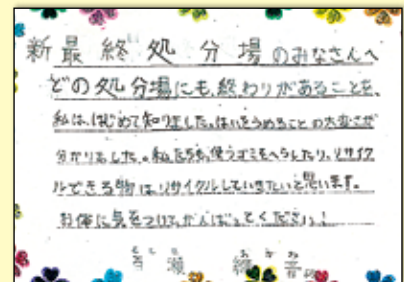 新最終処分場のみなさんへ
どの処分場にも、終わりがあることを、
私は、はじめて知りました。はいをうめることの大変さが
分かりました。私たちも、使うゴミをへらしたり、リサイク
ルできる物は、リサイクルしていきたいと思います。
お体に気をつけて、がんばってください!